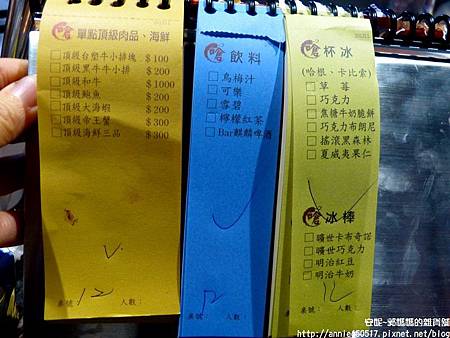 嗆 單點頂級肉品、海鮮
□頂級台塑牛小排塊 $100
□頂級黑牛牛小排 $200
□頂級和牛 $1000
□頂級鮑魚 $200
□頂級大海蝦 $200
□頂級帝王蟹 $300
□頂級海鮮三品 $300
桌號: 12 人數:
嗆 飲料
□烏梅汁
□可樂
□雪碧
□檸檬紅茶
□Bar麒麟啤酒
桌號: 12 人數:
嗆 杯冰
(哈根、卡比索)
□草莓
□巧克力
□焦糖牛奶脆餅
□巧克力布朗尼
□搖滾黑森林
□夏威夷果仁
嗆 冰棒
□曠世卡布奇諾
□曠世巧克力
□明治紅豆
□明治牛奶
桌號: 12 人數:
安妮~郭媽媽的雜貨舖
http://annie450517.pixnet.net/blog